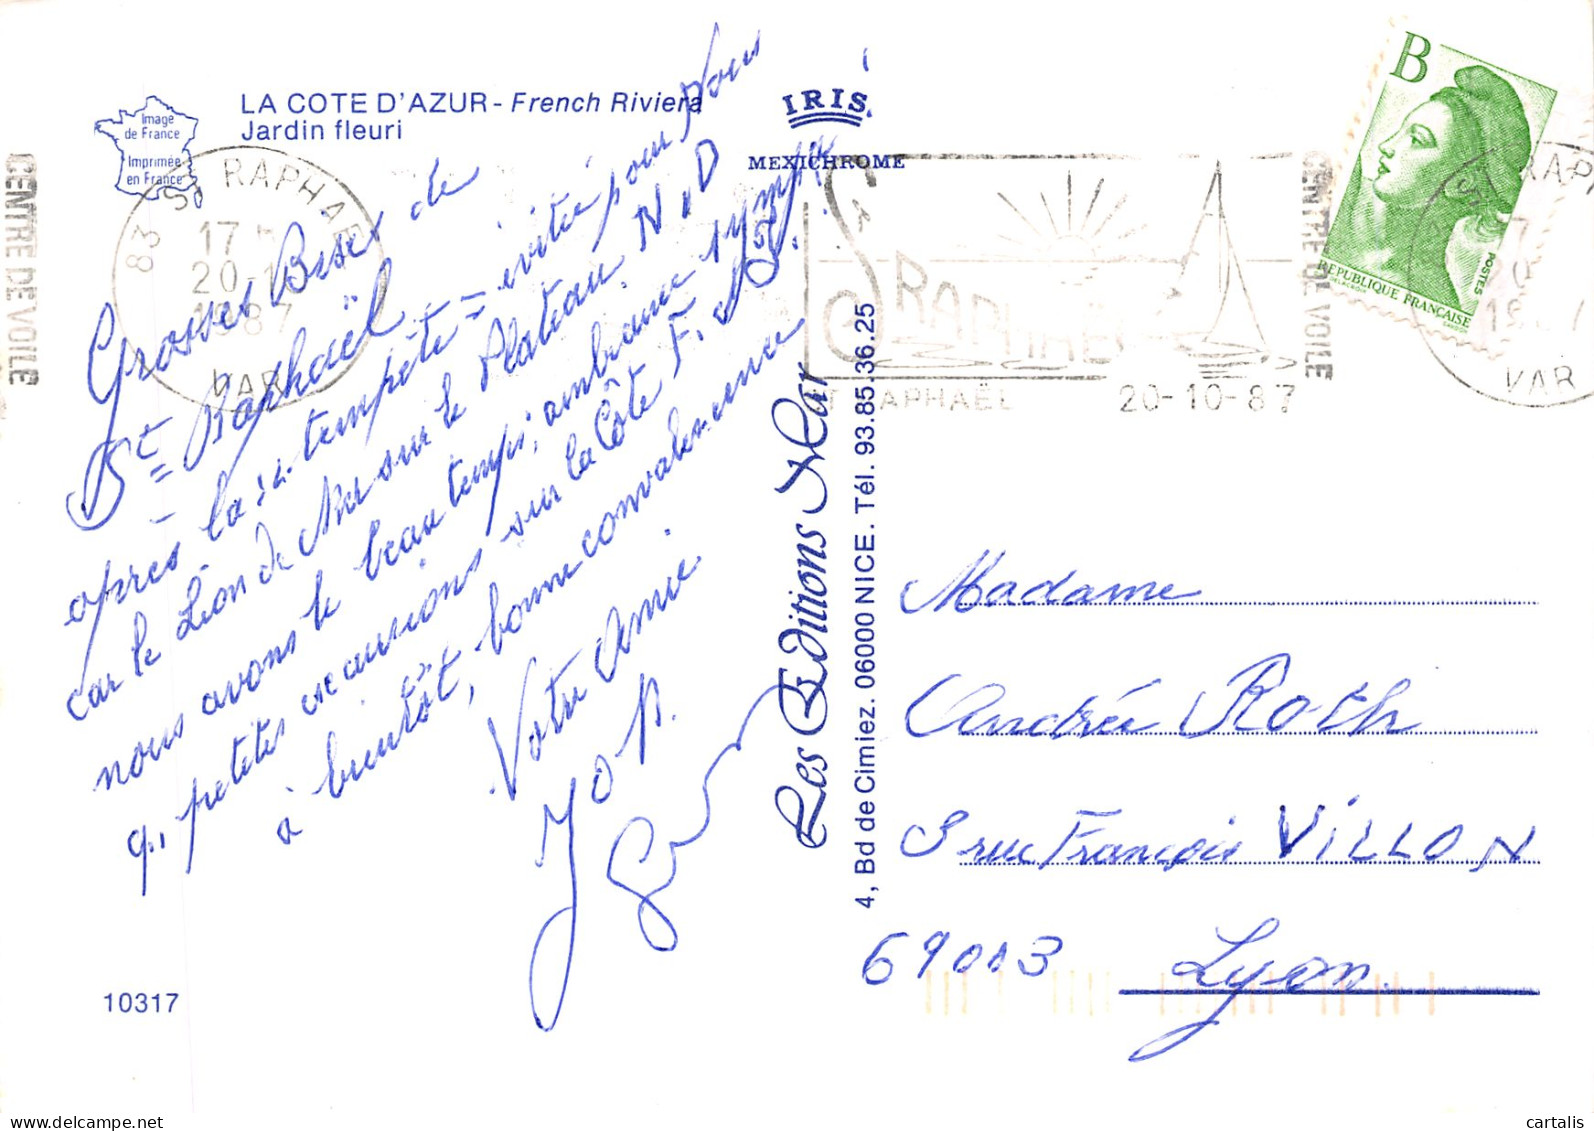 LA COTE D'AZUR - French Riviera
Jardin fleuri
Image
de France
Imprimée
en France
IRIS
MEXICHROME
Grosses Bises de
St= Raphaël
après la tempête = évitée pour Nous
car le Lion de Mer sur le Plateau. N. D
nous avons le beau temps, ambiance sympa
petites excursions sur la Côte F.
à bientôt, bonne convalescence
Votre Amie
Les Editions Mar
4, Bd de Cimiez. 06000 NICE. Tél. 93.85.36.25
10317
83 ST RAPHAEL
17
20-1
1987
VAR
CENTRE DE VOILE
St RAPHAEL
ST RAPHAËL 20-10-87
CENTRE DE VOILE
B
REPUBLIQUE FRANÇAISE
POSTES
ST RAP
VAR
Madame
Andrée Roth
5 rue François VILLON
69003 Lyon.
cartalis